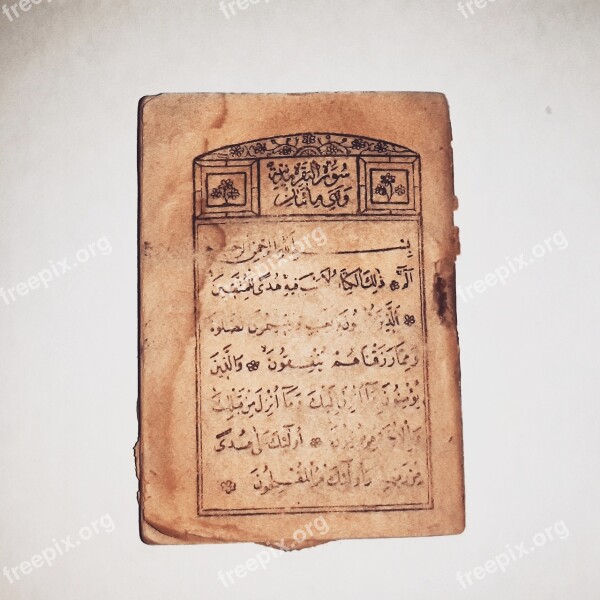 freepix.org
freepix.org
freepix.org
سورة البقرة
وهي مائتان
بسم الله الرحمن الرحيم
الم ذلك الكتاب فيه هدى للمتقين
الذين يؤمنون الصلوة
ومما رزقناهم ينفقون والذين
يؤمنون بما انزل اليك وما انزل من قبلك
وبالاخرة هم يوقنون اولئك على هدى
من ربهم واولئك هم المفلحون
freepix.org
freepix.org
freepix.org
freepix.org
freepix.org
freepix.org